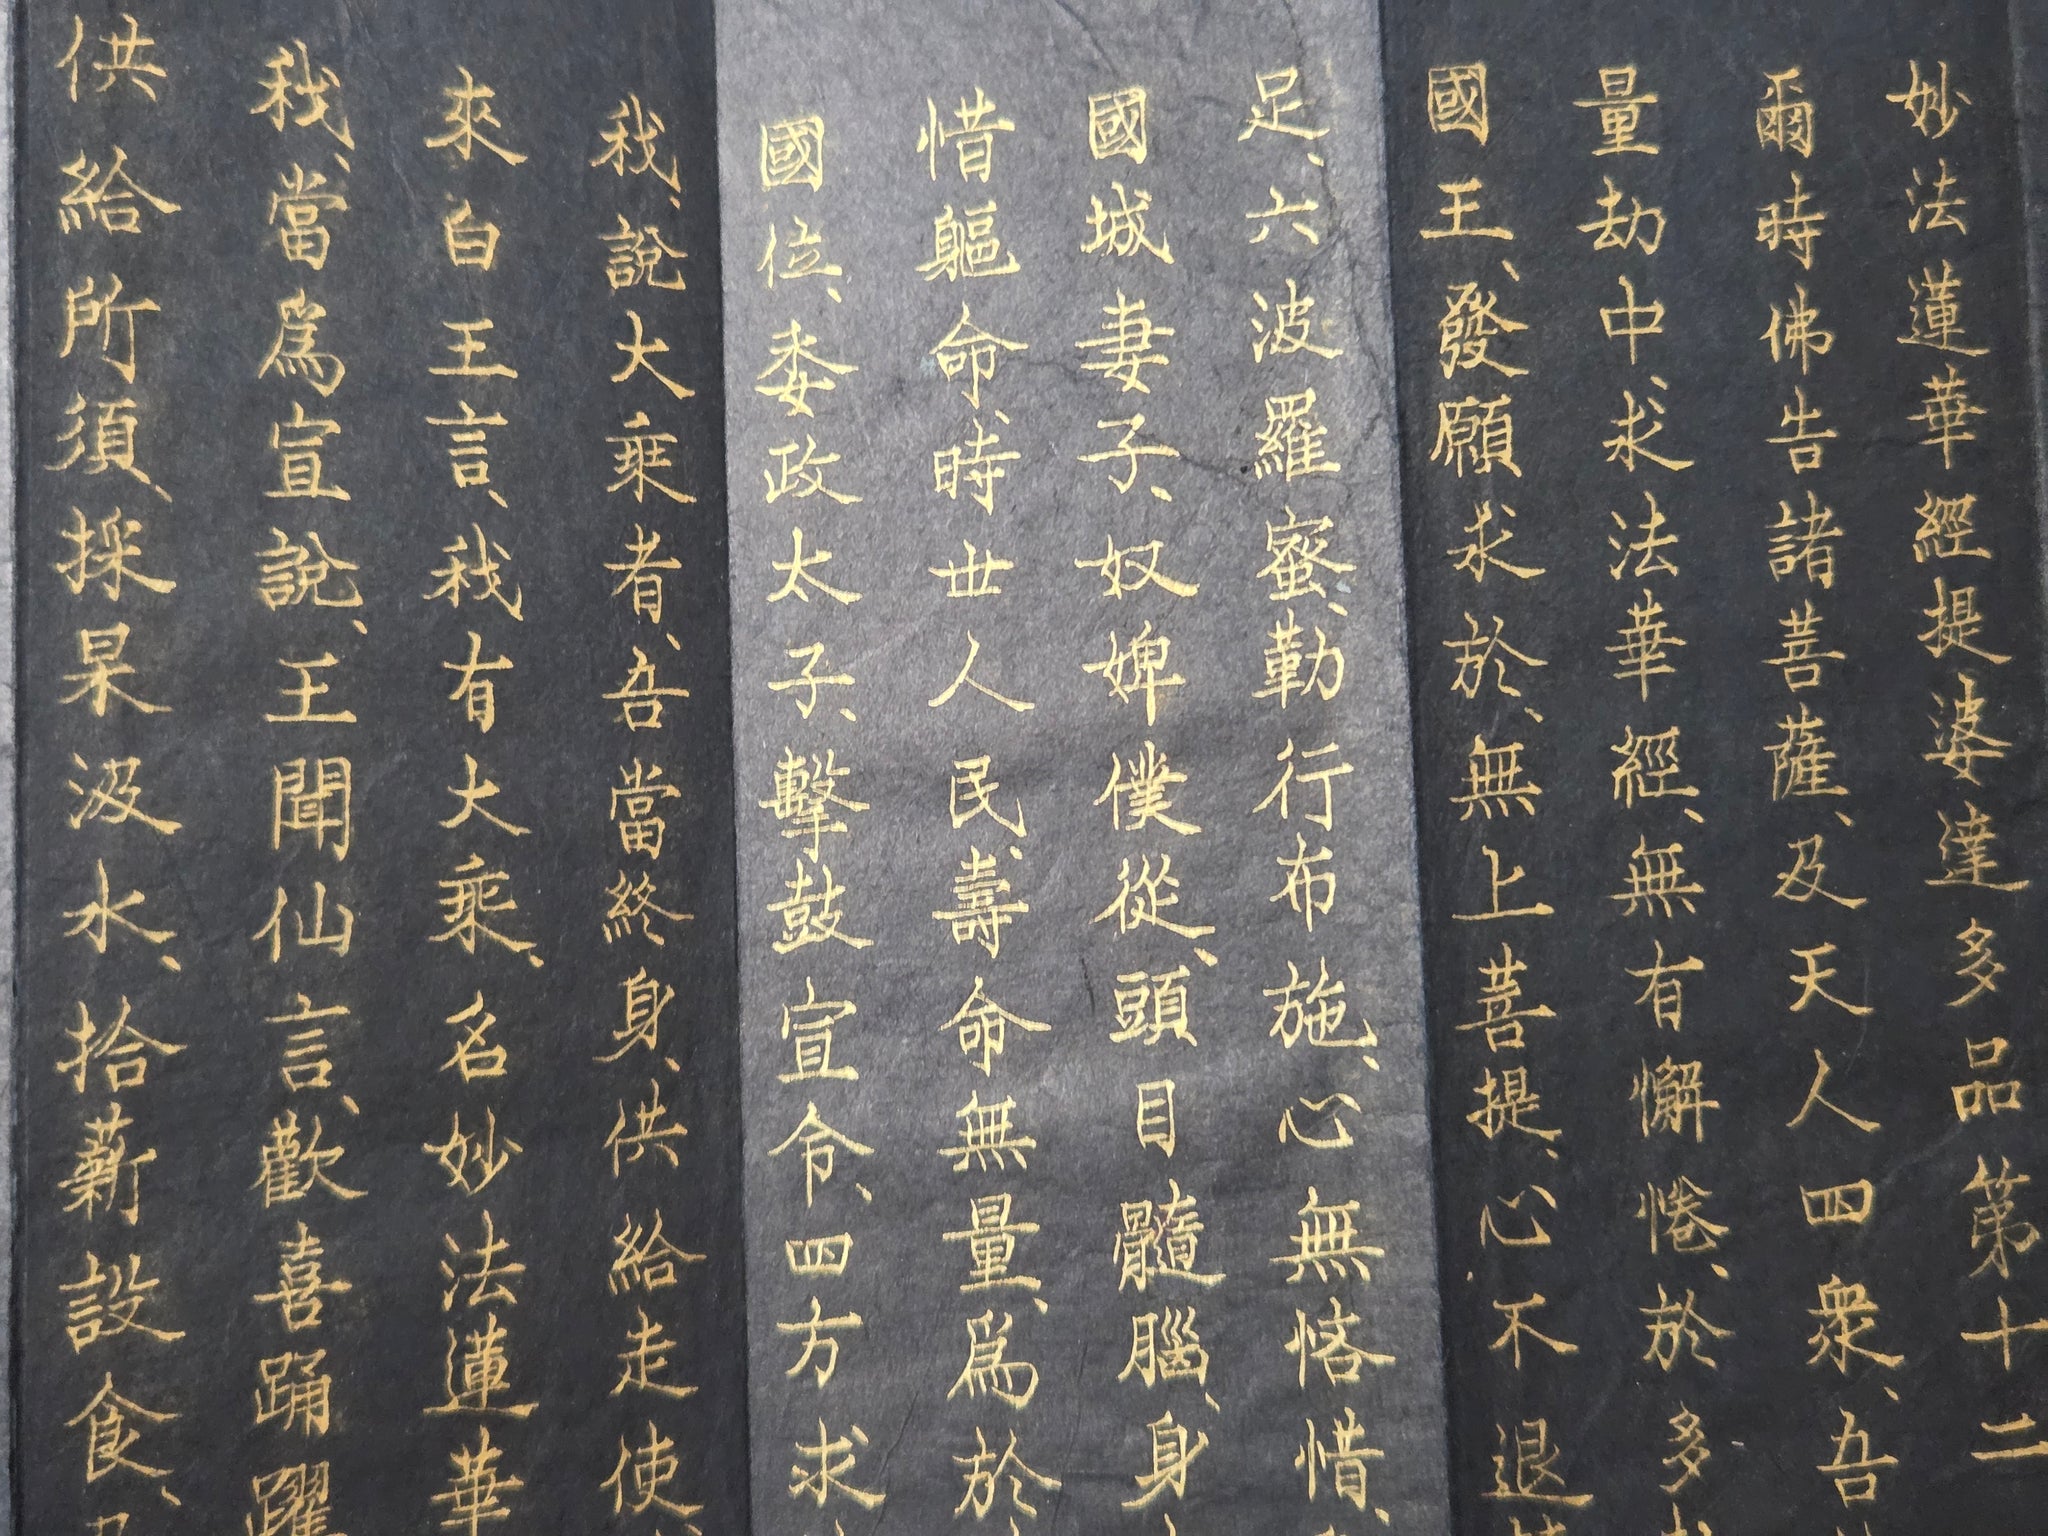 妙法蓮華經提婆達多品第十二
爾時佛告諸菩薩、及天人四衆、吾
量劫中、求法華經、無有懈惓、於多
國王、發願求於、無上菩提、心不退
足、六波羅蜜、勤行布施、心無悋惜、
國城妻子、奴婢僕從、頭目髓腦、身
惜軀命、時世人民、壽命無量、爲於
國位、委政太子、擊鼓宣令、四方求
我、說大乘者、吾當終身、供給走使
來白王言、我有大乘、名妙法蓮華
我、當爲宣說、王聞仙言、歡喜踊躍
供給所須、採果汲水、拾薪設食、